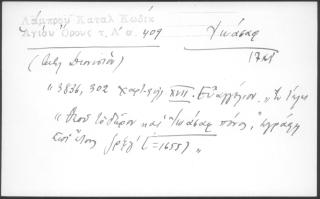 Λάμπρου Καταλ Κωδικ
Ἁγίου Ὄρους τ. Α' σ. 409
Ἰωάσαφ
17 αἰ
(Διονυσίου)
" 3836, 302 χαρτ. XVII. Εὐαγγέλιον. " Τὸ τέλος
" Θεοῦ τὸ δῶρον καὶ Ἰωάσαφ πόνος, ἐγράφη
ἐπὶ ἔτους ζρξγ' (=1655) "